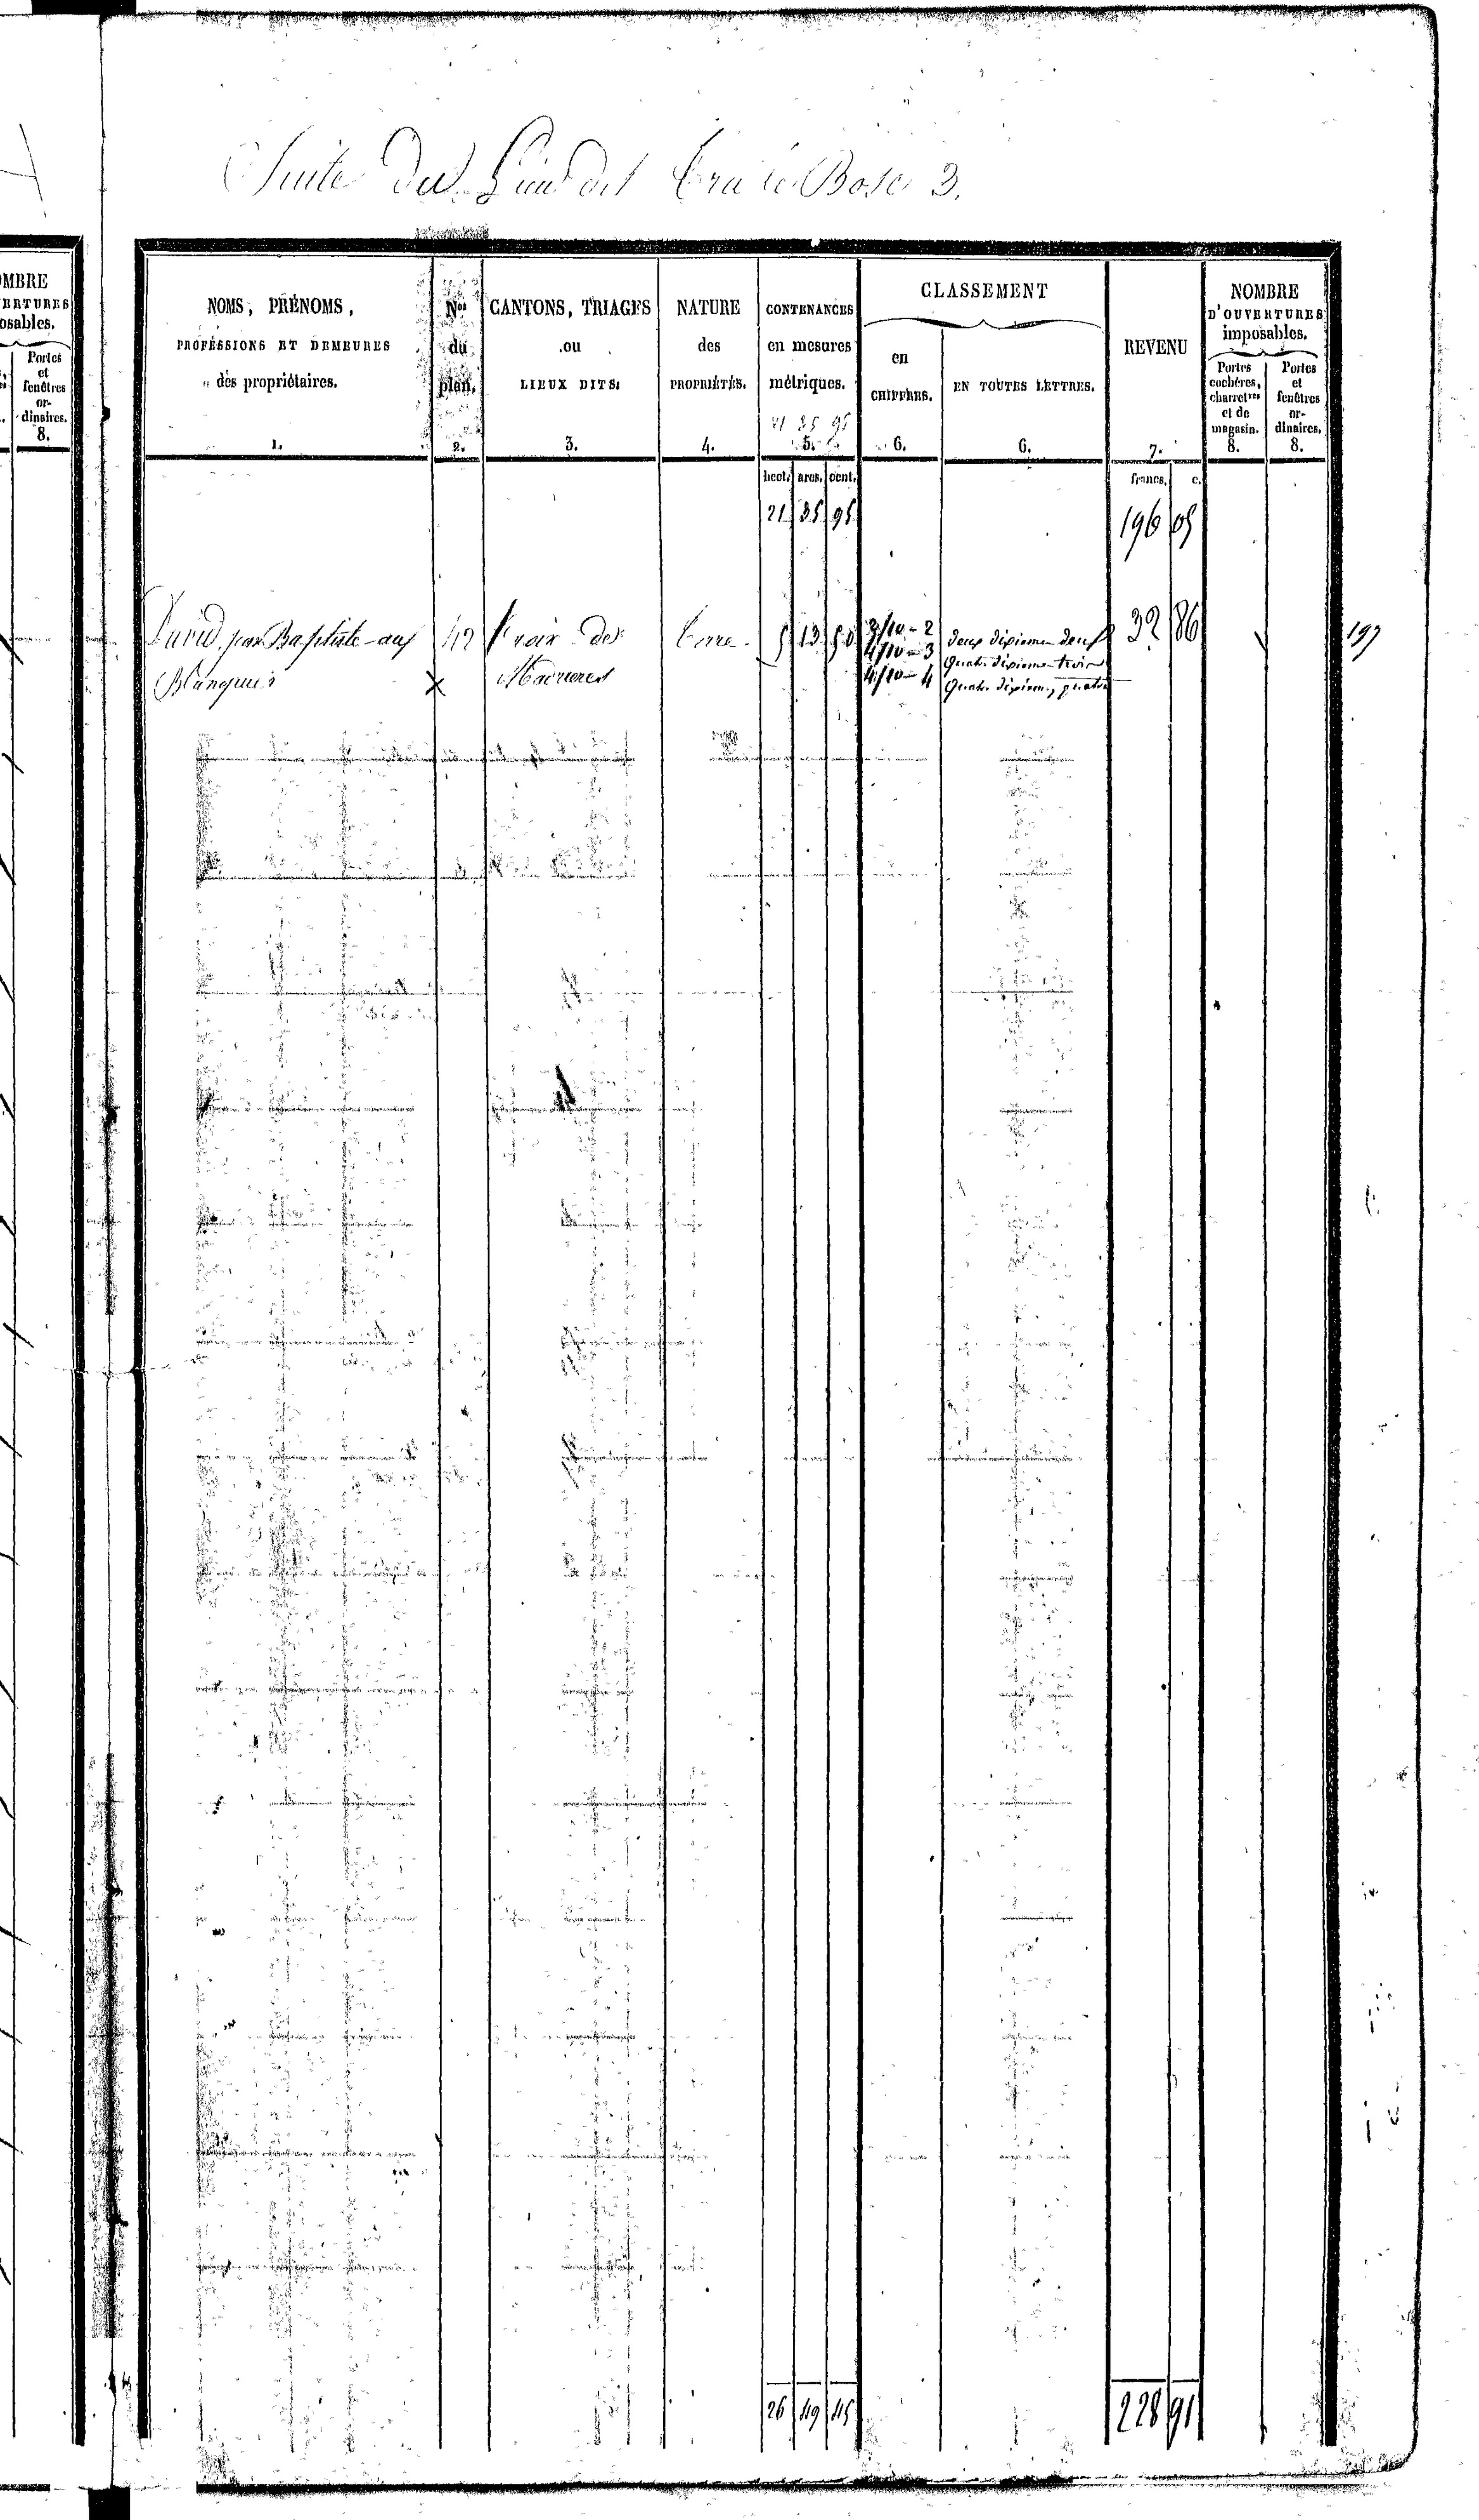 Suite du Lieu dit Bosc 3.
OMBRE
ERTURES
osables.
Portes
et
fenêtres
or-
dinaires.
8.
NOMS, PRÉNOMS,
PROFESSIONS ET DEMEURES
des propriétaires.
1.
Nos
du
plan.
2.
CANTONS, TRIAGES
ou
LIEUX DITS.
3.
NATURE
des
PROPRIÉTÉS.
4.
CONTENANCES
en mesures
métriques.
21 35 95
5.
CLASSEMENT
en
CHIFFRES.
6.
EN TOUTES LETTRES.
6.
REVENU
7.
NOMBRE
D'OUVERTURES
imposables.
Portes
cochères,
charretres
et de
magasin.
8.
Portes
et
fenêtres
or-
dinaires.
8.
hect. ares. cent. francs. c.
21 35 95 196 05
David jean Baptiste aux 42 Croix des terre 5 13 50 2/10 - 2 deux dixieme deux 32 86 197
4/10 - 3 Quatre dixieme trois
X 4/10 - 4 Quatre dixieme, quatre
26 49 45 228 91